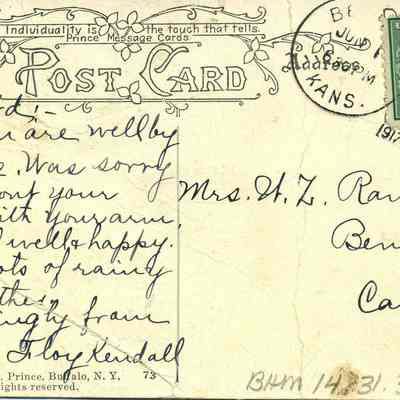 Individuality is the touch that tells.
Prince Message Cards
POST CARD
Address
BE
JUN
PM
KANS.
1917
are well by
Was sorry
your
with your arm
well & happy.
lots of rainy
ingly from
Floy Kendall
Mrs. W. Z. Ran
Ben
Ca
Prince, Buffalo, N. Y. 73
ights reserved.
BHM 14.731.3